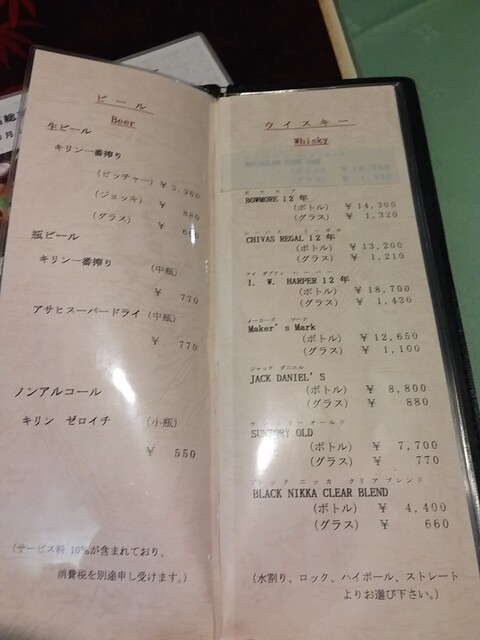 ビール
Beer
生ビール
キリン一番搾り
(ピッチャー) ¥3,960
(ジョッキ) ¥ 880
(グラス) ¥ 660
瓶ビール
キリン一番搾り (中瓶)
¥ 770
アサヒスーパードライ (中瓶)
¥ 770
ノンアルコール
キリン ゼロイチ (小瓶)
¥ 550
(サービス料 10%が含まれており、
消費税を別途申し受けます。)
ウイスキー
Whisky
ボウモア
BOWMORE 12 年
(ボトル) ¥ 14,300
(グラス) ¥ 1,320
シーバス リーガル
CHIVAS REGAL 12 年
(ボトル) ¥ 13,200
(グラス) ¥ 1,210
アイ ダブリュー ハーパー
I. W. HARPER 12 年
(ボトル) ¥ 18,700
(グラス) ¥ 1,430
メーカーズ マーク
Maker's Mark
(ボトル) ¥ 12,650
(グラス) ¥ 1,100
ジャック ダニエル
JACK DANIEL'S
(ボトル) ¥ 8,800
(グラス) ¥ 880
サントリーオールド
SUNTORY OLD
(ボトル) ¥ 7,700
(グラス) ¥ 770
ブラック ニッカ クリアブレンド
BLACK NIKKA CLEAR BLEND
(ボトル) ¥ 4,400
(グラス) ¥ 660
(水割り、ロック、ハイボール、ストレート
よりお選び下さい。)